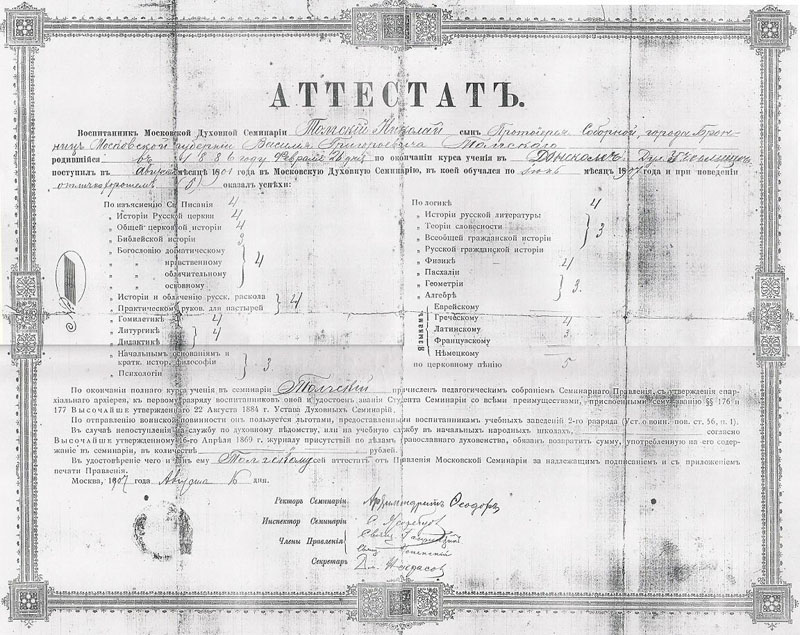 АТТЕСТАТЪ.
Воспитанникъ Московской Духовной Семинаріи Толгскій Николай сынъ Протоіерея Соборной, города Брон-
ницъ Московской губерніи Василія Григоровича Толгскаго
родившійся въ 1886 году Февраля 26 дня по окончаніи курса ученія въ Донскомъ Дух. Училищѣ
поступилъ въ Августѣ мѣсяцѣ 1901 года въ Московскую Духовную Семинарію, въ коей обучался по іюнь мѣсяцъ 1907 года и при поведеніи
отлично хорошемъ (5) оказалъ успѣхи:
По изъясненію Св. Писанія 4
„ Исторіи Русской церкви 4
„ Общей церковной исторіи 4
„ Библейской исторіи 3
„ Богословію догматическому
„ „ нравственному 4
„ „ обличительному
„ „ основному
„ Исторіи и обличенію русск. раскола
„ Практическому руков. для пастырей 4
„ Гомилетикѣ 4
„ Литургикѣ 4
„ Дидактикѣ
„ Начальнымъ основаніямъ и
кратк. истор. философіи 3
„ Психологіи
По логикѣ 4
„ Исторіи русской литературы
„ Теоріи словесности 3
„ Всеобщей гражданской исторіи
„ Русской гражданской исторіи
„ Физикѣ 4
„ Пасхаліи
„ Геометріи 3
„ Алгебрѣ
языкамъ
Еврейскому
Греческому 4
Латинскому
Французскому 3
Нѣмецкому
по церковному пѣнію 5
По окончаніи полнаго курса ученія въ семинаріи Толгскій причисленъ педагогическимъ собраніемъ Семинарскаго Правленія, съ утвержденія епар-
хіальнаго архіерея, къ первому разряду воспитанниковъ оной и удостоенъ званія Студента Семинаріи со всѣми преимуществами, присвоенными сему званію §§ 176 и
177 ВЫСОЧАЙШЕ утвержденнаго 22 Августа 1884 г. Устава Духовныхъ Семинарій.
По отправленію воинской повинности онъ пользуется льготами, предоставленными воспитанникамъ учебныхъ заведеній 2-го разряда (Уст. о воин. пов. ст. 56, п. 1).
В случаѣ непоступленія на службу по духовному вѣдомству, или на учебную службу въ начальныхъ народныхъ школахъ, согласно
ВЫСОЧАЙШЕ утвержденному 26-го Апрѣля 1869 г. журналу присутствій по дѣламъ православнаго духовенства, обязанъ возвратить сумму, употребленную на его содер-
жаніе въ семинаріи, въ количествѣ рублей.
Въ удостовѣреніе чего и данъ ему Толгскому сей аттестатъ отъ Правленія Московской Семинаріи за надлежащимъ подписаніемъ и съ приложеніемъ
печати Правленія.
Москва, 1907 года Августа 16 дня.
Ректоръ Семинаріи Архимандритъ Ѳеодоръ
Инспекторъ Семинаріи
Члены Правленія
Секретарь